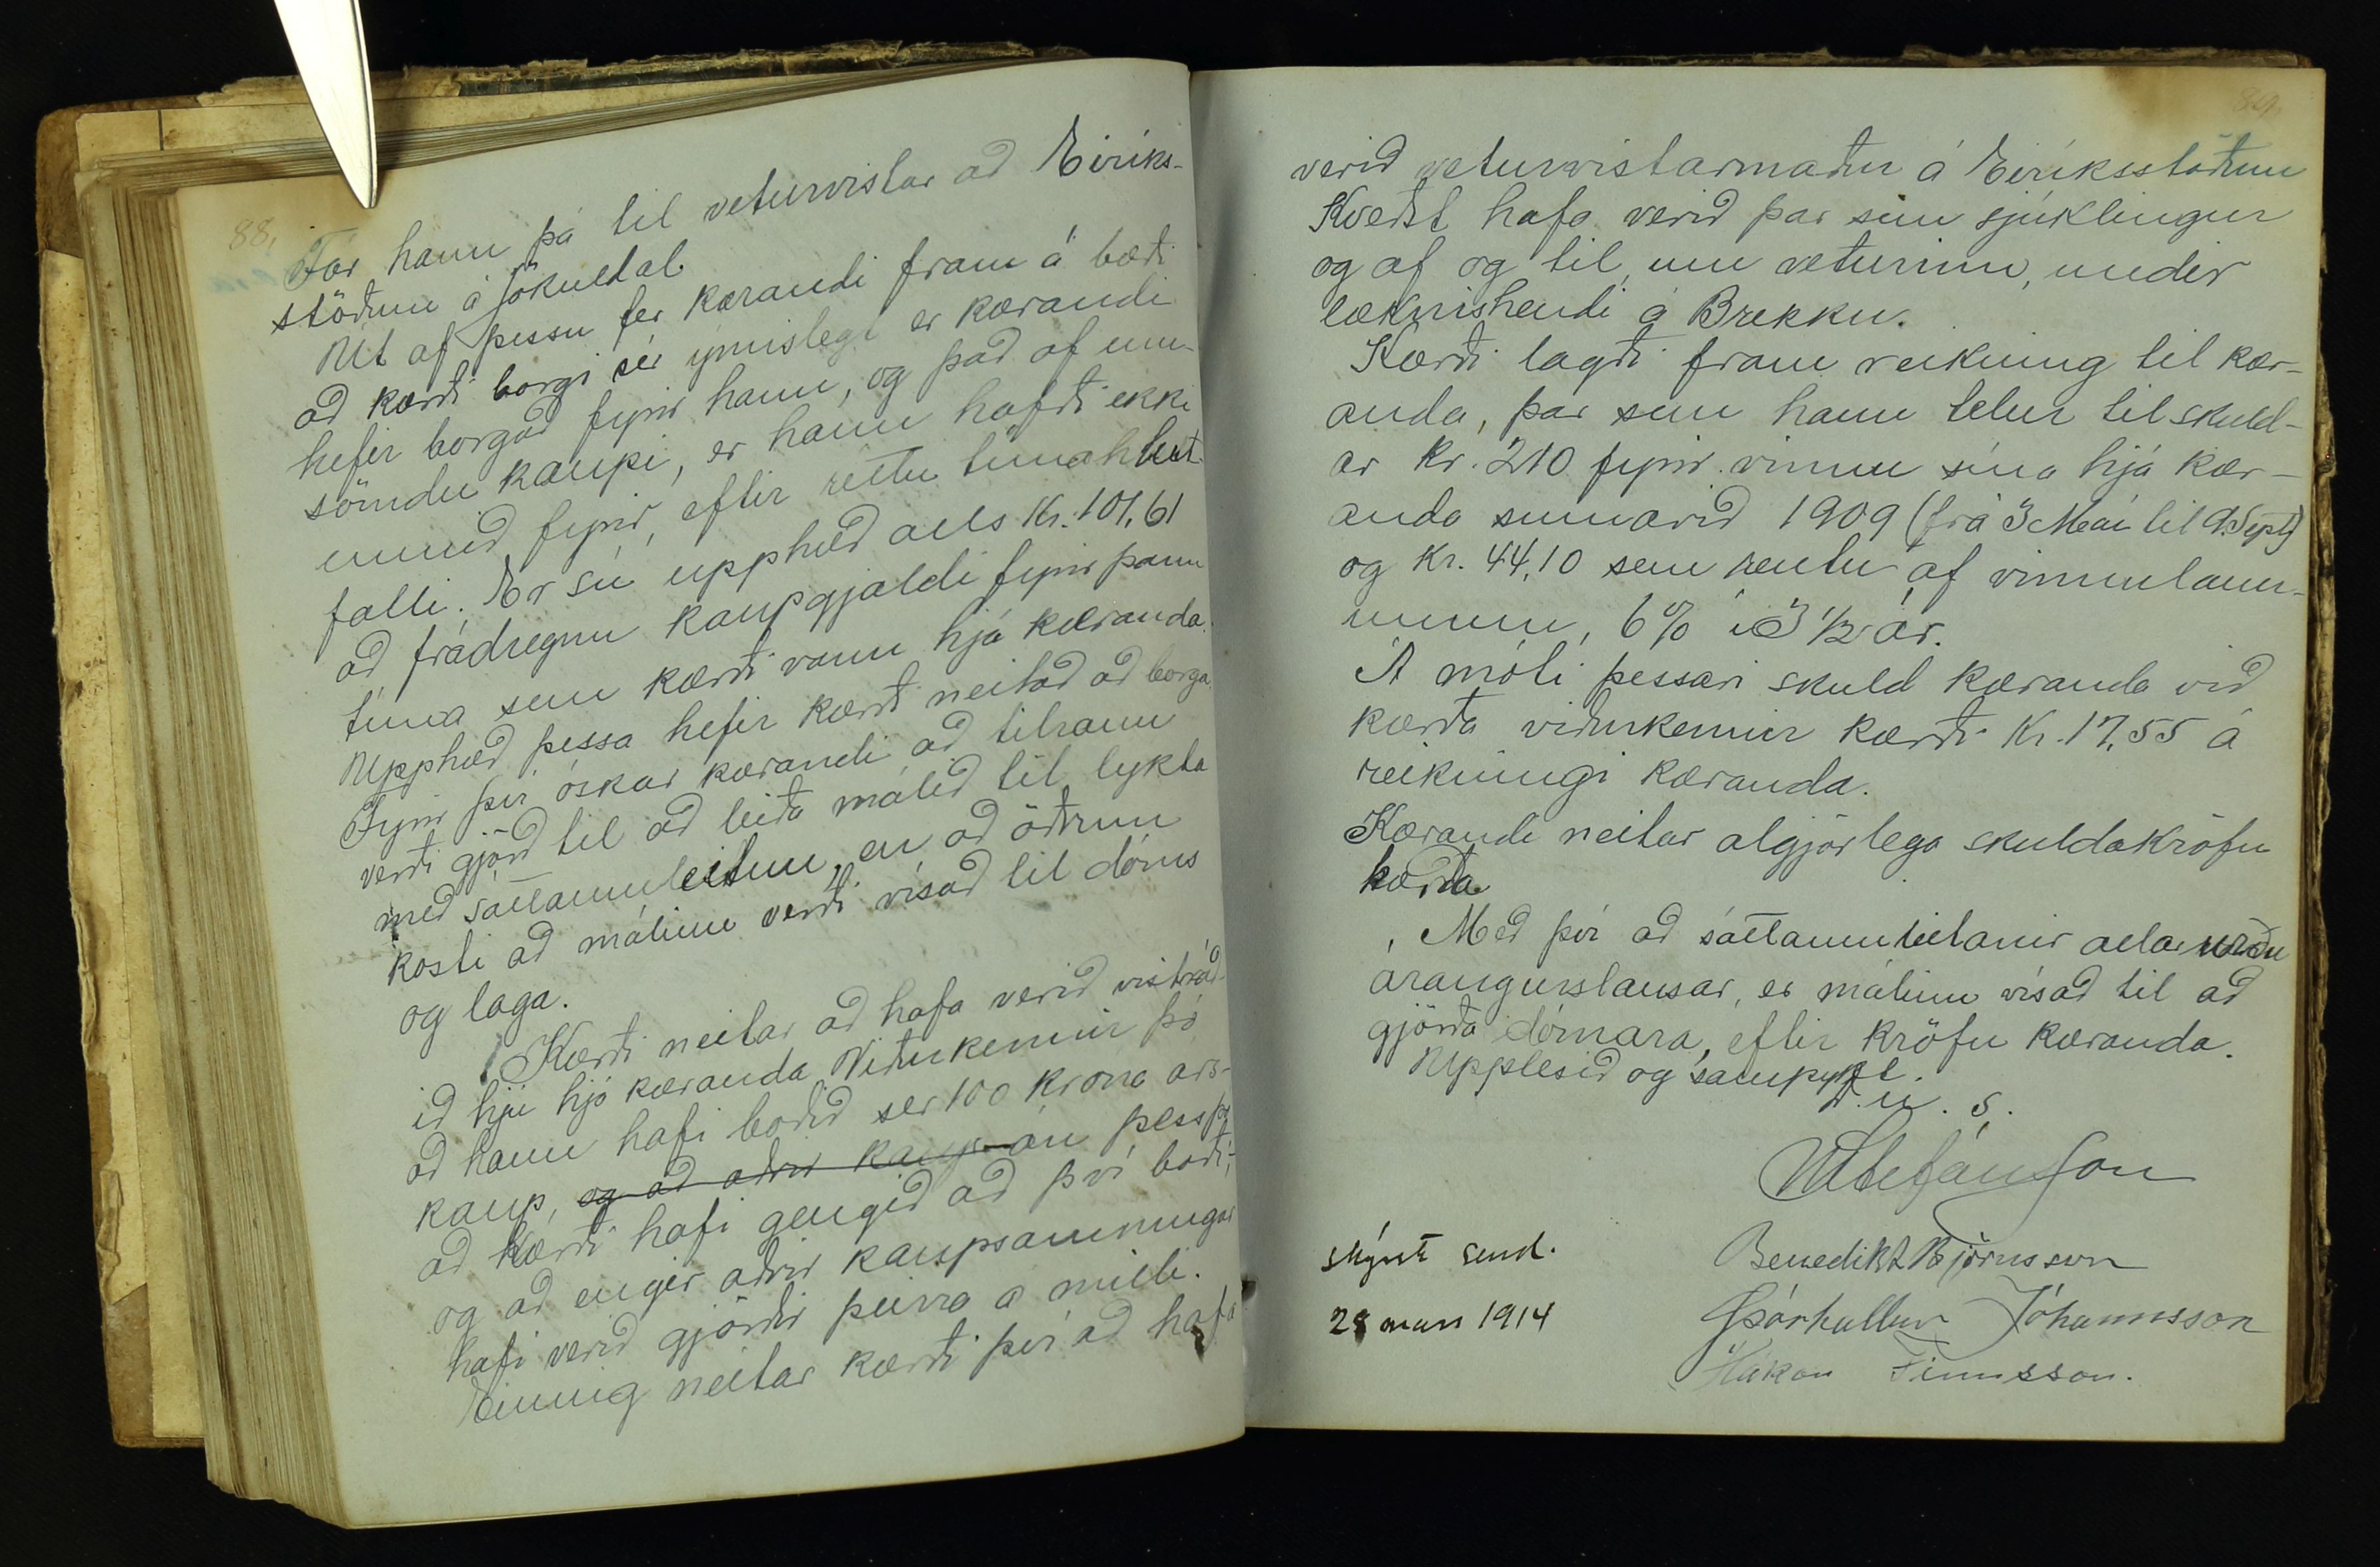 88.
Fór hann þá til veturvistar að Eiríks-
stöðum á Jökuldal.
Út af þessu fer kærandi fram á bæði
að kærði borgi sér ýmislegt er kærandi
hefir borgað fyrir hann, og það af um-
sömdu kaupi, er hann hafði ekki
unnið fyrir, eftir réttu tímahlut-
falli. Er sú upphæð alls Kr. 101,61
að frádregnu kaupgjaldi fyrir þann
tíma sem kærði vann hjá kæranda.
Upphæð þessa hefir kærði neitað að borga.
Fyrir því óskar kærandi að tilraun
verði gjörð til að leiða málið til lykta
með sáttaumleitun, en að öðrum
kosti að málinu verði vísað til dóms
og laga.
Kærði neitar að hafa verið vistráð-
ið hjú hjá kæranda. Viðurkennir þó
að hann hafi boðið sér 100 króna árs-
kaup, og að aðrir kaup án þess þó
að kærði hafi gengið að því boði,
og að engir aðrir kaupsamningar
hafi verið gjörðir þeirra á milli.
Einnig neitar kærði því að hafa
89.
verið veturvistarmaður á Eiríksstöðum
Kveðst hafa verið þar sem sjúklingur
og af og til, um veturinn, undir
læknishendi á Brekku.
Kærði lagði fram reikning til kær-
anda, þar sem hann telur til skuld-
ar Kr. 210 fyrir vinnu sína hjá kær-
anda sumarið 1909 (frá 3 Maí til 9. Sept)
og Kr. 44,10 sem rentu af vinnulaun-
unum, 6% í 3 1/2 ár.
Á móti þessari skuld kæranda við
kærða viðurkennir kærði Kr. 17,55 á
reikningi kæranda.
Kærandi neitar algjörlega skuldakröfu
kærða.
Með því að sáttaumleitanir allar urðu
árangurslausar, er málinu vísað til að
gjörða dómara, eftir kröfu kæranda.
Upplesið og samþykt.
D. u. s.
Stefánsson
Benedikt Björnsson
Þórhallur Jóhannsson
Hákon Finnsson.
skýrsla send.
28 mars 1914